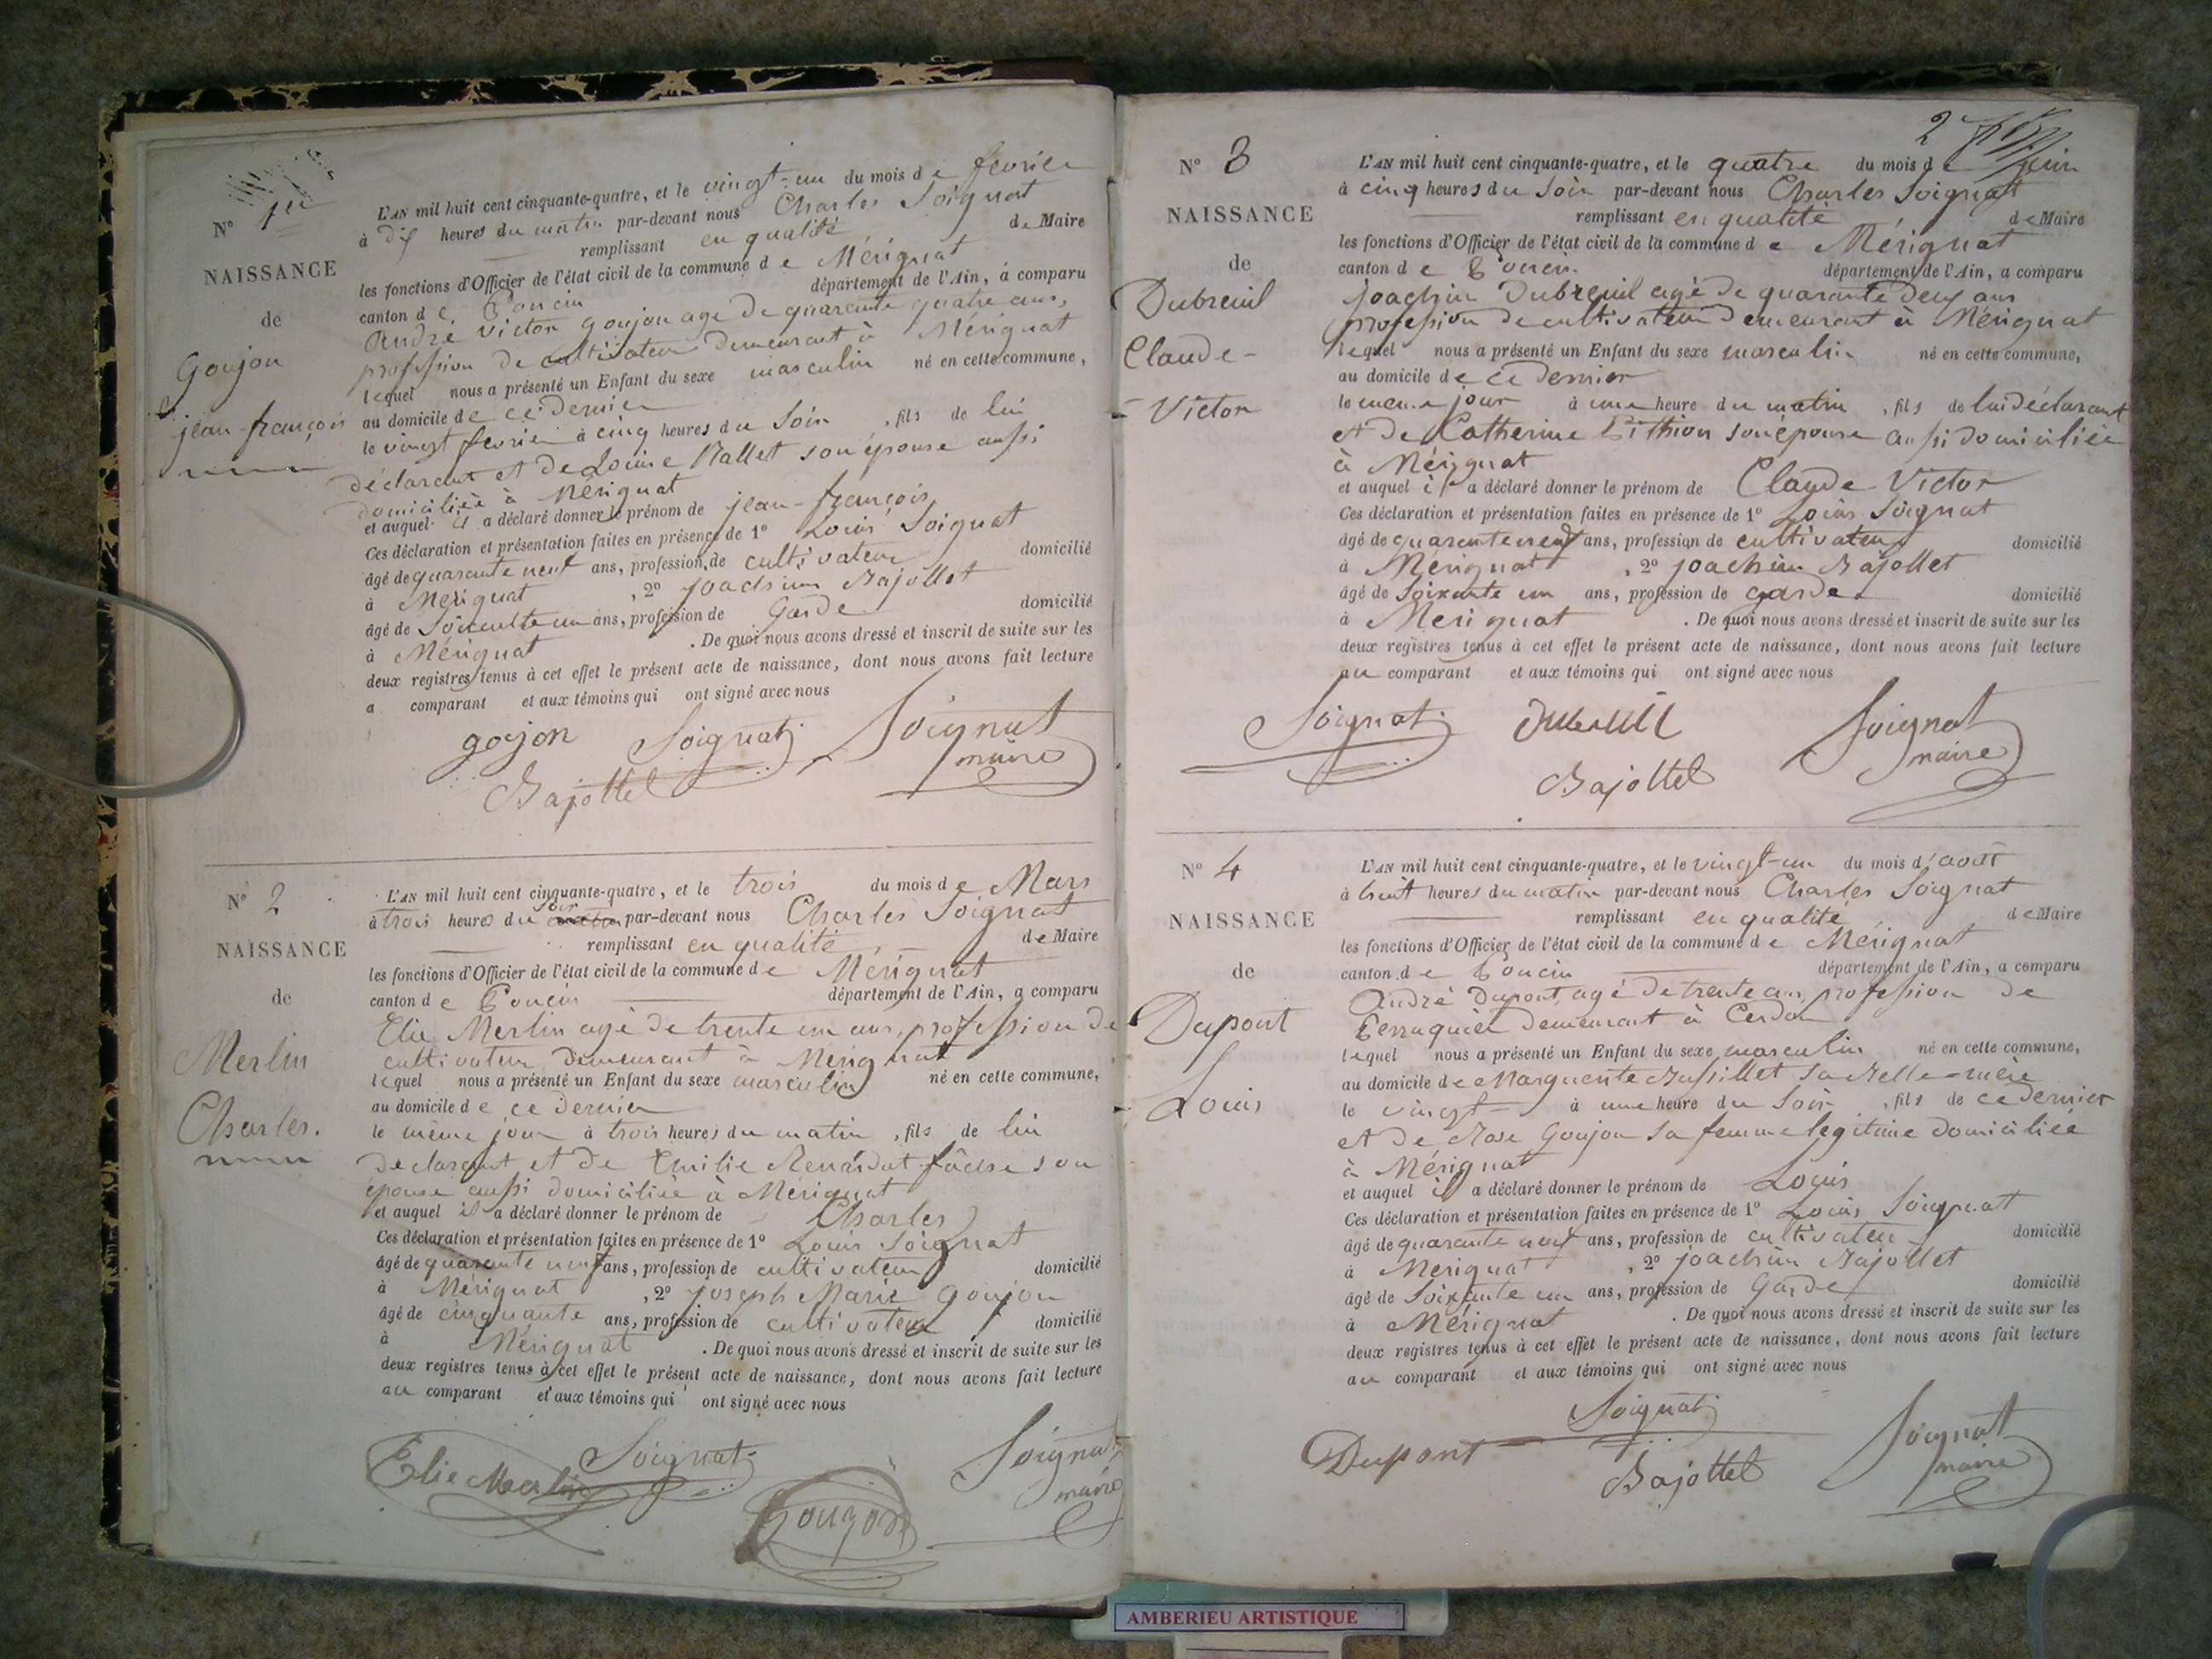 N° 1er
NAISSANCE
de
Goujon
jean-françois
L'AN mil huit cent cinquante-quatre, et le vingt-un du mois de fevrier
à dix heures du matin par-devant nous Charles Soignat
remplissant en qualité de Maire
les fonctions d'Officier de l'état civil de la commune de Mérignat
canton de Poncin département de l'Ain, a comparu
André Victor Goujon agé de quarante quatre ans,
profession de cultivateur demeurant à Mérignat
lequel nous a présenté un Enfant du sexe masculin né en cette commune,
au domicile de ce dernier
le vingt fevrier à cinq heures du Soir, fils de lui
déclarant et de Louise Mallet son épouse aussi
domiciliée à Mérignat
et auquel il a déclaré donner le prénom de jean-françois
Ces déclaration et présentation faites en présence de 1° Louis Soignat
âgé de quarante neuf ans, profession de cultivateur domicilié
à Mérignat, 2° joachim Bajollet
âgé de Soixante un ans, profession de Garde domicilié
à Mérignat. De quoi nous avons dressé et inscrit de suite sur les
deux registres tenus à cet effet le présent acte de naissance, dont nous avons fait lecture
a comparant et aux témoins qui ont signé avec nous
gojon Soignat Soignat
maire
Bajollet
N° 2
NAISSANCE
de
Merlin
Charles.
L'AN mil huit cent cinquante-quatre, et le trois du mois de Mars
à trois heures du soir par-devant nous Charles Soignat
remplissant en qualité de Maire
les fonctions d'Officier de l'état civil de la commune de Mérignat
canton de Poncin département de l'Ain, a comparu
Elie Merlin agé de trente un ans, profession de
cultivateur demeurant à Mérignat
lequel nous a présenté un Enfant du sexe masculin né en cette commune,
au domicile de ce dernier
le même jour à trois heures du matin, fils de lui
declarant et de Emilie son
épouse aussi domiciliée à Mérignat
et auquel il a déclaré donner le prénom de Charles
Ces déclaration et présentation faites en présence de 1° Louis Soignat
âgé de quarante neuf ans, profession de cultivateur domicilié
à Mérignat, 2° joseph Marie Goujon
âgé de cinquante ans, profession de cultivateur domicilié
à Mérignat. De quoi nous avons dressé et inscrit de suite sur les
deux registres tenus à cet effet le présent acte de naissance, dont nous avons fait lecture
au comparant et aux témoins qui ont signé avec nous
Elie Merlin Soignat Soignat
maire
Goujon
2
N° 3
NAISSANCE
de
Dubreuil
Claude-
-Victor
L'AN mil huit cent cinquante-quatre, et le quatre du mois de juin
à cinq heures du Soir par-devant nous Charles Soignat
remplissant en qualité de Maire
les fonctions d'Officier de l'état civil de la commune de Mérignat
canton de Poncin département de l'Ain, a comparu
joachim Dubreuil agé de quarante deux ans
profession de cultivateur demeurant à Mérignat
lequel nous a présenté un Enfant du sexe masculin né en cette commune,
au domicile de ce dernier
le meme jour à une heure du matin, fils de lui déclarant
et de Catherine Pithion son épouse aussi domiciliée
à Mérignat
et auquel il a déclaré donner le prénom de Claude Victor
Ces déclaration et présentation faites en présence de 1° Louis Soignat
âgé de quarante neuf ans, profession de cultivateur domicilié
à Mérignat, 2° joachim Bajollet
âgé de Soixante un ans, profession de garde domicilié
à Merignat. De quoi nous avons dressé et inscrit de suite sur les
deux registres tenus à cet effet le présent acte de naissance, dont nous avons fait lecture
au comparant et aux témoins qui ont signé avec nous
Soignat Dubreuil Soignat
maire
Bajollet
N° 4
NAISSANCE
de
Dupont
Louis
L'AN mil huit cent cinquante-quatre, et le vingt-un du mois d'août
à huit heures du matin par-devant nous Charles Soignat
remplissant en qualité de Maire
les fonctions d'Officier de l'état civil de la commune de Mérignat
canton de Poncin département de l'Ain, a comparu
André Dupont agé de trente ans, profession de
Perruquier demeurant à Cerdon
lequel nous a présenté un Enfant du sexe masculin né en cette commune,
au domicile de Marguerite Bassillet sa Belle-mère
le vingt à une heure du Soir, fils de ce dernier
et de Rose Goujon sa femme legitime domiciliée
à Mérignat
et auquel il a déclaré donner le prénom de Louis
Ces déclaration et présentation faites en présence de 1° Louis Soignat
âgé de quarante neuf ans, profession de cultivateur domicilié
à Mérignat, 2° joachim Bajollet
âgé de Soixante un ans, profession de Garde domicilié
à Mérignat. De quoi nous avons dressé et inscrit de suite sur les
deux registres tenus à cet effet le présent acte de naissance, dont nous avons fait lecture
au comparant et aux témoins qui ont signé avec nous
Soignat
Dupont Soignat
maire
Bajollet
AMBERIEU ARTISTIQUE